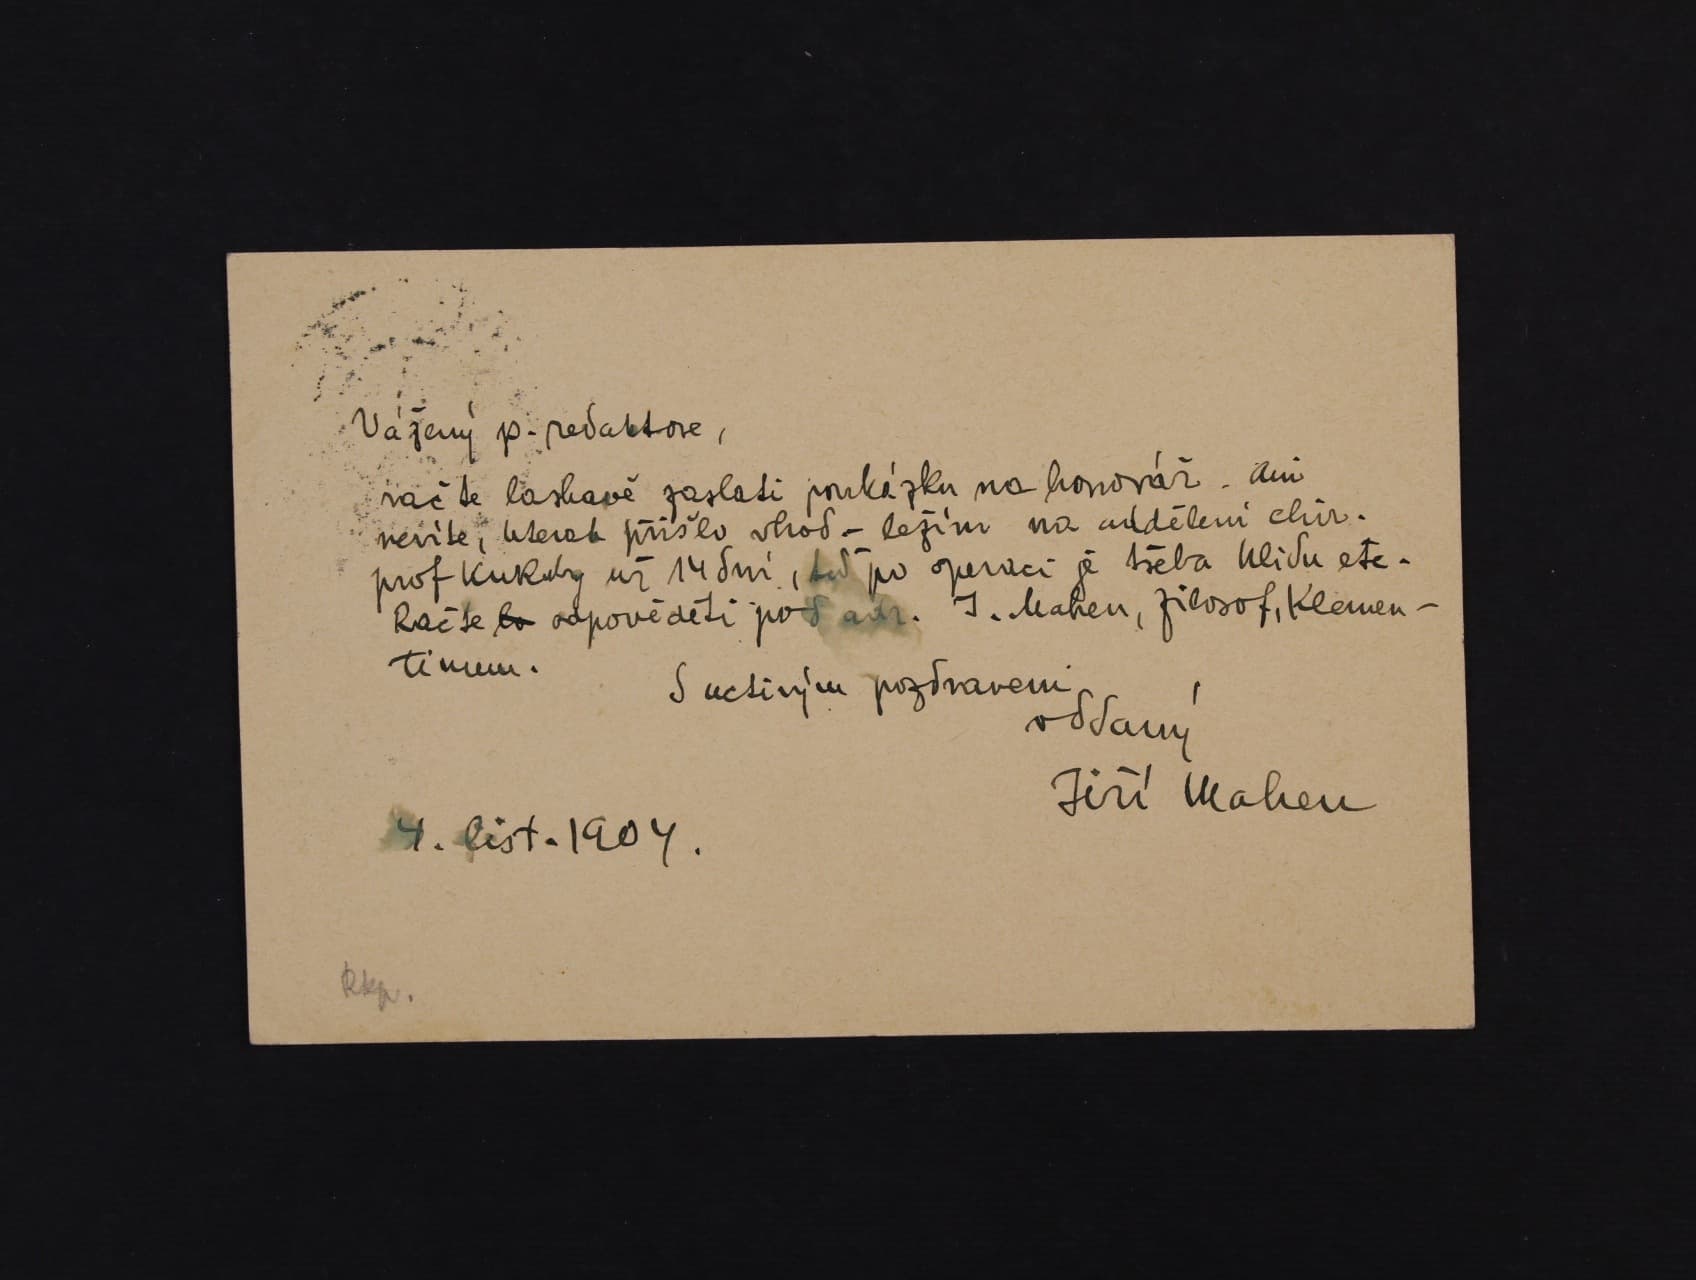 Vážený p. redaktore,
račte laskavě zaslati poukázku na honorář. Ani
nevíte, kterak přišlo vhod – ležím na oddělení chir.
prof Kukuly už 14 dní, teď po operaci je třeba klidu etc.
Račte odpověděti pod adr. J. Mahen, filosof, Klemen-
tinum.
S uctivým pozdravem
oddaný
Jiří Mahen
4. list. 1904.
Rkp.